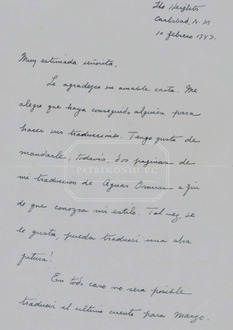 The Heights
Carlsbad, N. M
10 febrero 1943.
Muy estimada señorita,
Le agradezco su amable carta. Me
alegro que haya conseguido alguien para
hacer sus traducciones. Tengo gusto de
mandarle, todavía, dos páginas de
mi traduccion de Aguas Oscuras a fin
de que conozca mi estilo. Tal vez, si
le gusta, pueda traducir una obra
futura!
PATRIMONIO UC
En todo caso no sera posible
traducir el ultimo cuento para marzo.